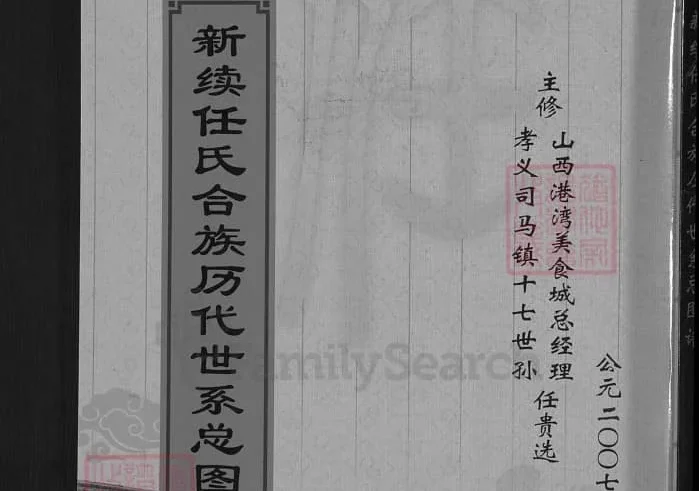 公元二〇〇七
主修
山西港湾美食城总经理
孝义司马镇十七世孙
任贵选
新续任氏合族历代世系总图
FamilySearch